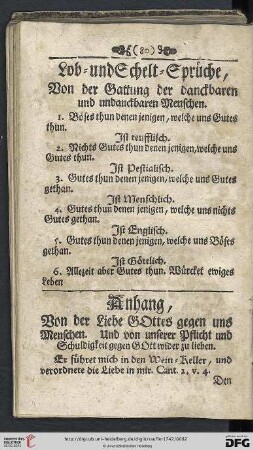 (80)
Lob-und Schelt-Sprüche,
Von der Gattung der danckbaren
und undanckbaren Menschen.
1. Böses thun denen jenigen, welche uns Gutes
thun.
Ist teufflisch.
2. Nichts Gutes thun denen jenigen, welche uns
Gutes thun.
Ist Pestialisch.
3. Gutes thun denen jenigen, welche uns Gutes
gethan.
Ist Menschlich.
4. Gutes thun denen jenigen, welche uns nichts
Gutes gethan.
Ist Englisch.
5. Gutes thun denen jenigen, welche uns Böses
gethan.
Ist Göttlich.
6. Allezeit aber Gutes thun. Würcket ewiges
Leben
Anhang,
Von der Liebe GOttes gegen uns
Menschen. Und von unserer Pflicht und
Schuldigkeit gegen GOtt wider zu lieben.
Er führet mich in den Wein-Keller, und
verordnete die Liebe in mir. Cant. 2, v. 4.
Den
UNIVERSITÄTS-
BIBLIOTHEK
HEIDELBERG
© Universitätsbibliothek Heidelberg
gefördert durch die
DFG